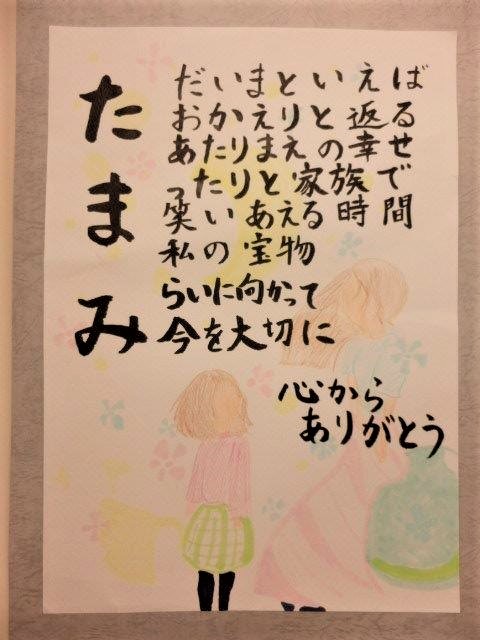 たまみ
だいまといえば
おかえりと返る
あたりまえの幸せ
ったりと家族で
笑いあえる時間
私の宝物
らいに向かって
今を大切に
心から
ありがとう